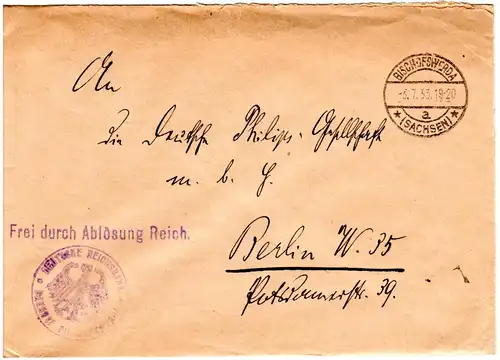 BISCHOFSWERDA
-6.7.33.19-20
a
(SACHSEN)
An
die Deutsche Philips-Gesellschaft
m. b. H.
Frei durch Ablösung Reich.
Berlin W. 35
Potsdamerstr. 39.